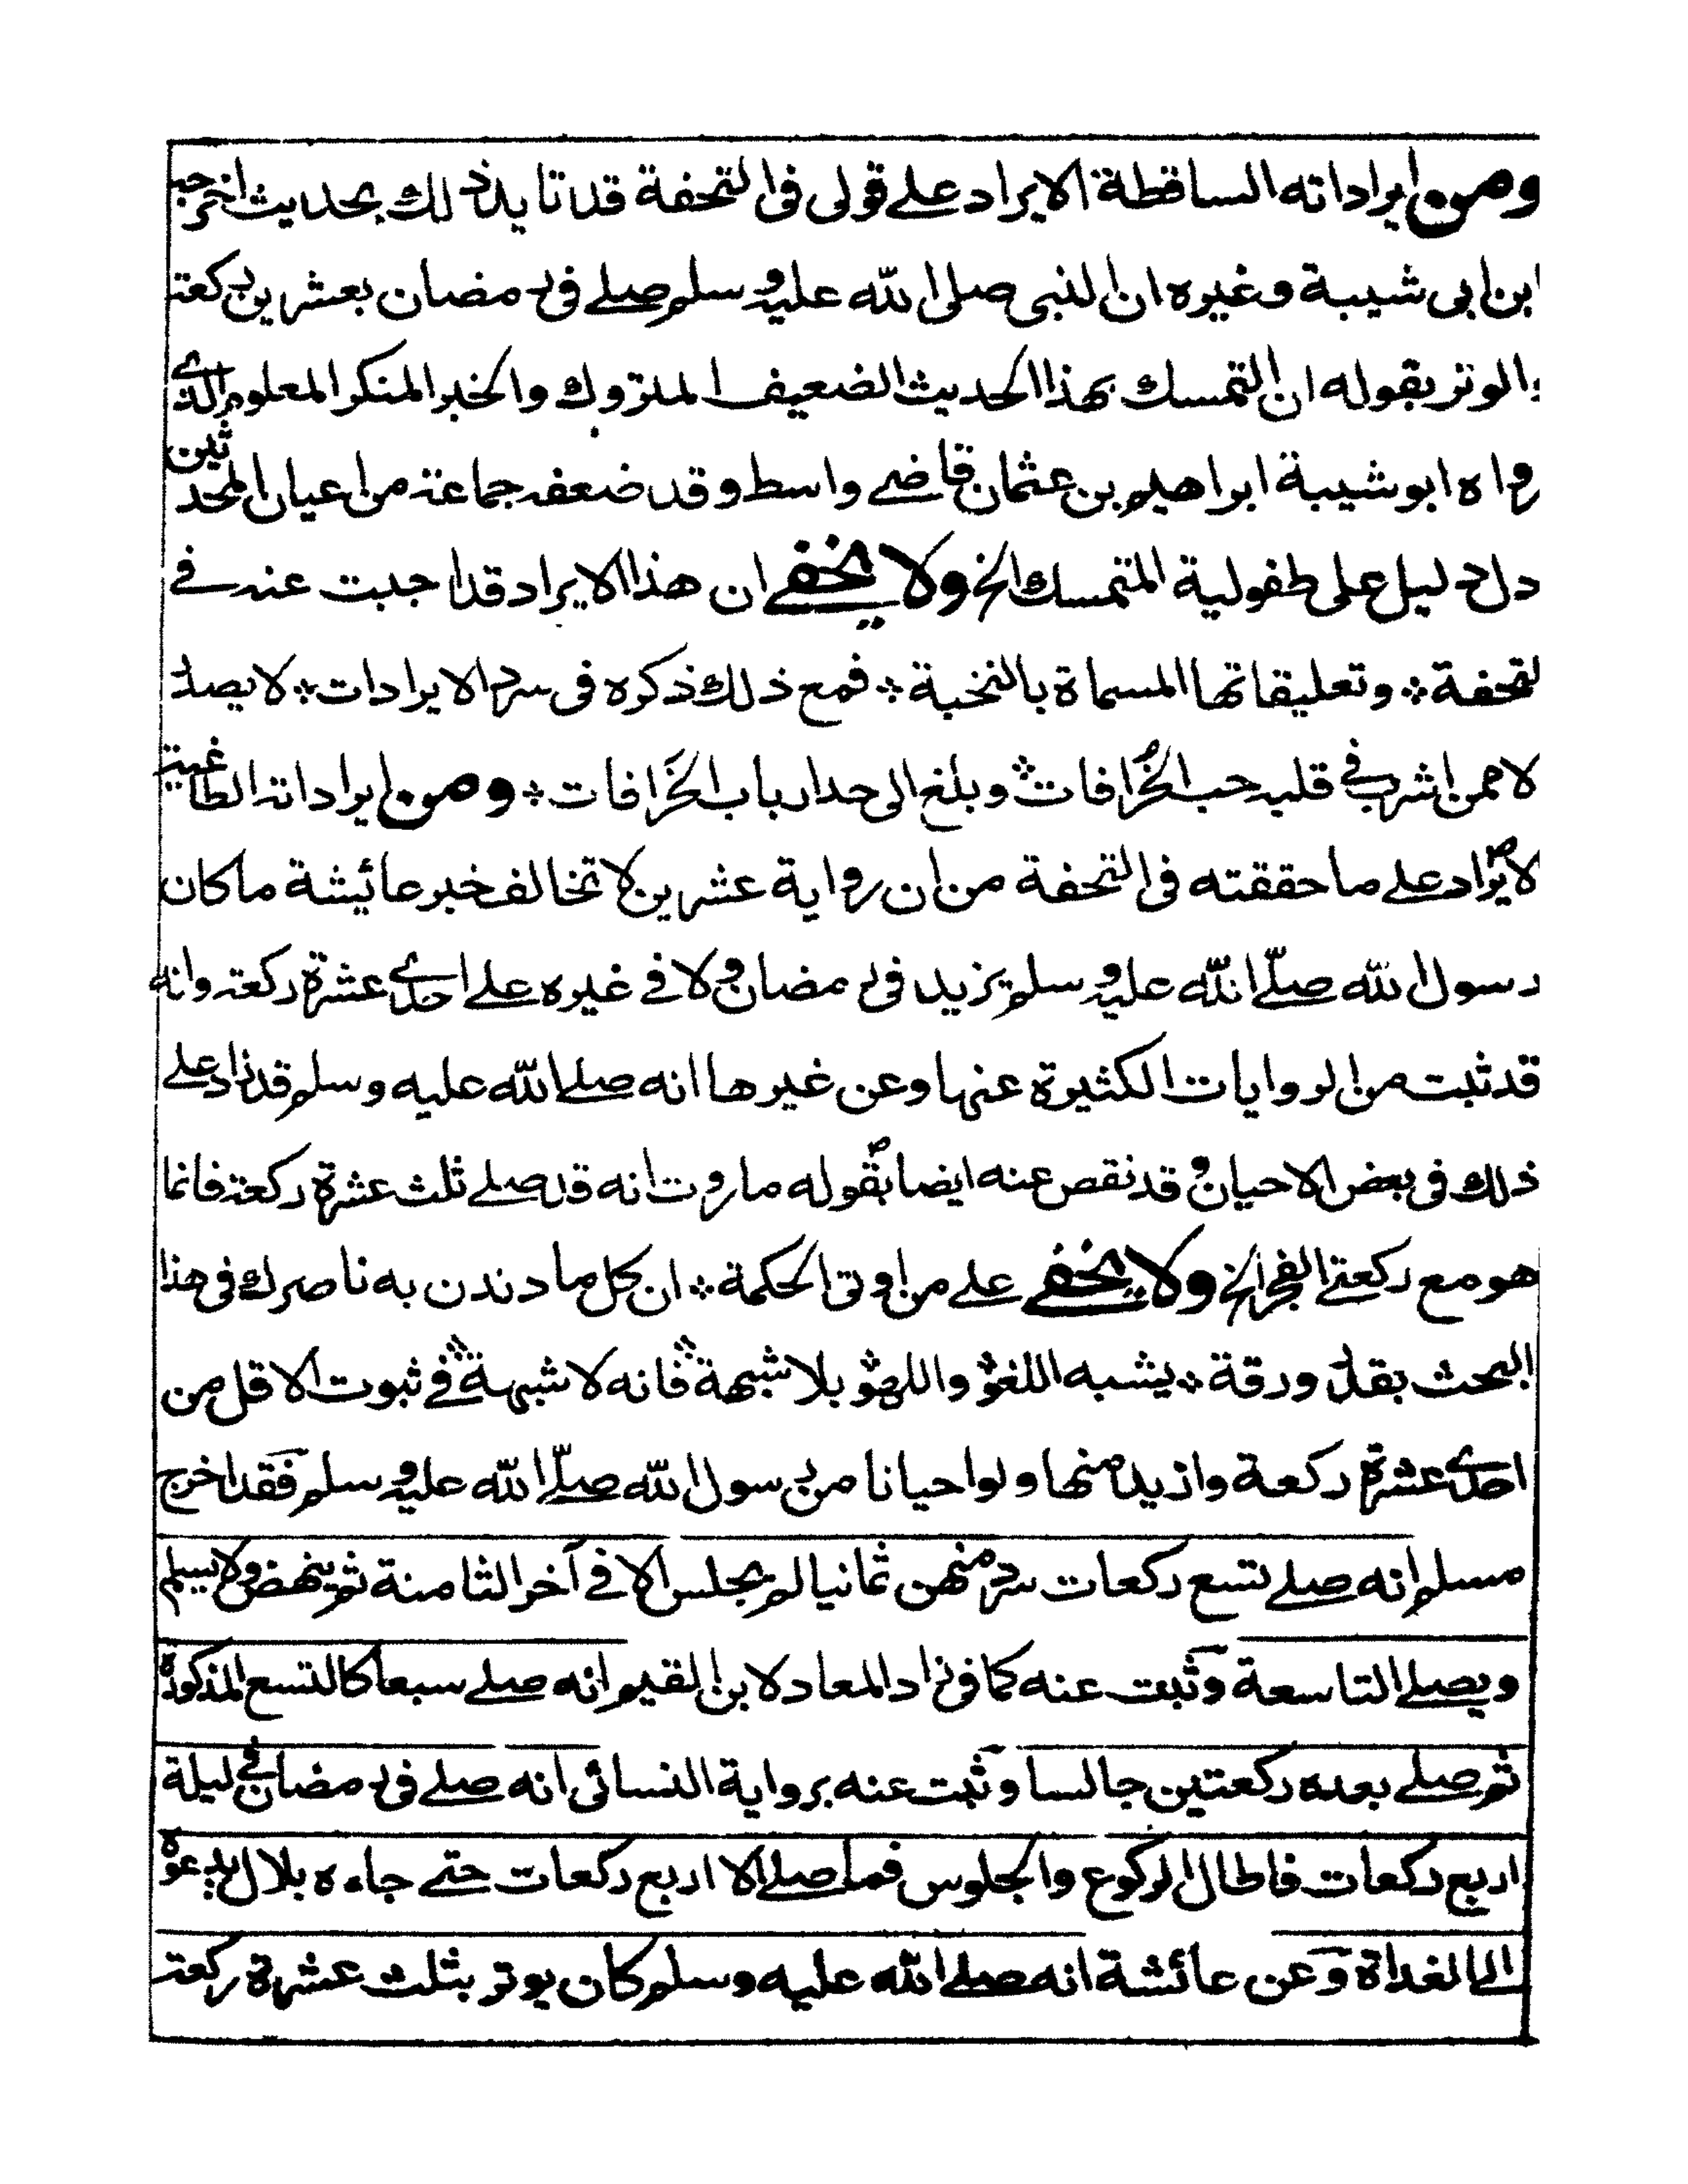 ومن ايراداته الساقطة الايراد على قولى فى التحفة قد تايد ذلك بحديث اخرجه
ابن ابى شيبة وغيره ان النبى صلى الله عليه وسلم صلى فى رمضان بعشرين ركعة
والوتر بقوله ان التمسك بهذا الحديث الضعيف المتروك والخبر المنكر المعلوم الذى
رواه ابو شيبة ابراهيم بن عثمان قاضى واسط وقد ضعفه جماعة من اعيان المحدثين
دل دليل على طفولية المتمسك الخ ولا يخفى ان هذا الايراد قد اجبت عنه فى
لتحفة ؞ وتعليقاتها المسماة بالنخبة ؞ فمع ذلك ذكره فى سرد الايرادات ؞ لا يصدر
لا ممن اشرب فى قلبه حب الخرافات ؞ وبلغ الى حد ارباب الخرافات ؞ ومن ايراداته الطاغية
لايراد على ما حققته فى التحفة من ان رواية عشرين لا تخالف خبر عائيشة ما كان
رسول الله صلّى الله عليه وسلم يزيد فى رمضان ولا فى غيره على احدى عشرة ركعة وانه
قد ثبت من الروايات الكثيرة عنها وعن غيرها انه صلى الله عليه وسلم قد زاد على
ذلك فى بعض الاحيان وقد نقص عنه ايضا بقوله ما روت انه قد صلى ثلث عشرة ركعة فانما
هو مع ركعتى الفجر الخ ولا يخفى على من اوتى الحكمة ؞ ان كل ما دندن به ناصرك فى هذا
البحث بقدر ورقة ؞ يشبه اللغو واللهو بلا شبهة ؞ فانه لا شبهة ؞ فى ثبوت الاقل من
احدى عشرة ركعة وازيد منها ولو احيانا من رسول الله صلّى الله عليه وسلم فقد اخرج
مسلم انه صلى تسع ركعات سرد منهن ثمانيا لم يجلس الا فى آخر الثامنة ثم ينهض ولا يسلم
ويصلى التاسعة وثبت عنه كما فى زاد المعاد لابن القيم انه صلى سبعا كالتسع المذكورة
ثم صلى بعده ركعتين جالسا وثبت عنه برواية النسائى انه صلى فى رمضان فى ليلة
اربع ركعات فاطال الركوع والجلوس فما صلى الا اربع ركعات حتى جاءه بلال يدعوه
الى الغداة وعن عائشة انه صلى الله عليه وسلم كان يوتر بثلث عشرة ركعة